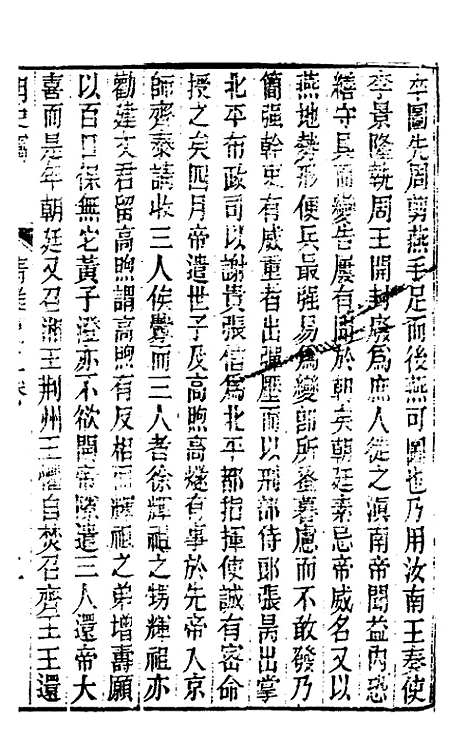 卒圖先周剪燕手足而後燕可圖也乃用汝南王奏使
李景隆執周王開封廢爲庶人徙之滇南帝聞益內恐
繕守具而變告屢有聞於朝矣朝廷素忌帝威名又以
燕地勢形便兵最強易爲變卽所蚤暮慮而不敢發乃
簡強幹吏有威重者出彈壓而以刑部侍郎張昺出掌
北平布政司以謝貴張信爲北平都指揮使誠有密命
授之矣四月帝遣世子及高煦高燧有事於先帝入京
師齊泰請收三人俟釁而三人者徐輝祖之甥輝祖亦
勸建文君留高煦謂高煦有反相而輝祖之弟增壽願
以百口保無它黃子澄亦不欲開帝隙遣三人還帝大
喜而是年朝廷又召湘王荆州王懼自焚召齊王王還